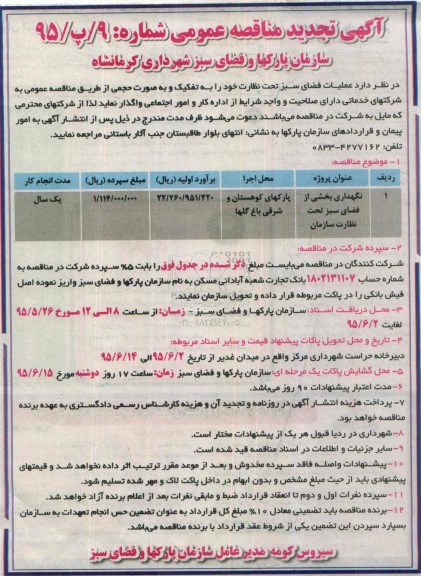 آگهی تجدید مناقصه عمومی شماره: ۹/پ/۹۵
سازمان پارکها و فضای سبز شهرداری کرمانشاه
در نظر دارد عملیات فضای سبز تحت نظارت خود را به تفکیک و به صورت حجمی از طریق مناقصه عمومی به
شرکتهای خدماتی دارای صلاحیت و واجد شرایط از اداره کار و امور اجتماعی واگذار نماید لذا از شرکتهای محترمی
که مایل به شرکت در مناقصه می‌باشند دعوت می‌شود ظرف مدت مندرج در ذیل پس از انتشار آگهی به امور
پیمان و قراردادهای سازمان پارکها به نشانی: انتهای بلوار طاقبستان جنب آثار باستانی مراجعه نمایند.
تلفن: ۴۲۷۷۱۶۲-۰۸۳۳
۱- موضوع مناقصه:
ردیف عنوان پروژه محل اجرا برآورد اولیه (ریال) مبلغ سپرده (ریال) مدت انجام کار
۱ نگهداری بخشی از فضای سبز تحت نظارت سازمان پارکهای کوهستان و شرقی باغ گلها ۲۲/۲۶۰/۹۵۱/۴۲۰ ۱/۱۱۴/۰۰۰/۰۰۰ یک سال
۲- سپرده شرکت در مناقصه:
شرکت کنندگان در مناقصه می‌بایست مبلغ ذکر شده در جدول فوق را بابت ۵% سپرده شرکت در مناقصه به
شماره حساب ۱۸۰۲۱۳۱۱۰۷ بانک تجارت شعبه آبادانی مسکن به نام سازمان پارکها و فضای سبز واریز نموده اصل
فیش بانکی را در پاکت مربوطه قرار داده و تحویل سازمان نمایند.
۳- محل دریافت اسناد: سازمان پارکها و فضای سبز - زمان: از ساعت ۸ الی ۱۲ مورخ ۹۵/۵/۲۶
لغایت ۹۵/۶/۲
۴- تاریخ و محل تحویل پاکات پیشنهاد قیمت و سایر اسناد مربوطه:
دبیرخانه حراست شهرداری مرکز واقع در میدان غدیر از تاریخ ۹۵/۶/۲ الی ۹۵/۶/۱۴
۵- محل گشایش پاکات یک مرحله ای: سازمان پارکها و فضای سبز زمان: ساعت ۱۷ روز دوشنبه مورخ ۹۵/۶/۱۵
۶- مدت اعتبار پیشنهادات ۹۰ روز می‌باشد.
۷- پرداخت هزینه انتشار آگهی در روزنامه و تجدید آن و هزینه کارشناس رسمی دادگستری به عهده برنده
مناقصه خواهد بود.
۸- شهرداری در رد یا قبول هر یک از پیشنهادات مختار است.
۹- سایر جزئیات و اطلاعات در اسناد مناقصه قید شده است.
۱۰- پیشنهادات واصله فاقد سپرده مخدوش و بعد از موعد مقرر ترتیب اثر داده نخواهد شد و قیمتهای
پیشنهادی باید از حیث مبلغ مشخص و بدون ابهام در داخل پاکت لاک و مهر شده تسلیم شود.
۱۱- سپرده نفرات اول و دوم تا انعقاد قرارداد ضبط و مابقی نفرات بعد از اعلام برنده آزاد خواهد شد.
۱۲- برنده مناقصه باید تضمینی معادل ۱۰% مبلغ کل قرارداد به عنوان تضمین حس انجام تعهدات به سازمان
بسپارد سپردن این تضمین یکی از شروط عقد قرارداد با برنده مناقصه می‌باشد.
سیروس کومه مدیرعامل سازمان پارکها و فضای سبز